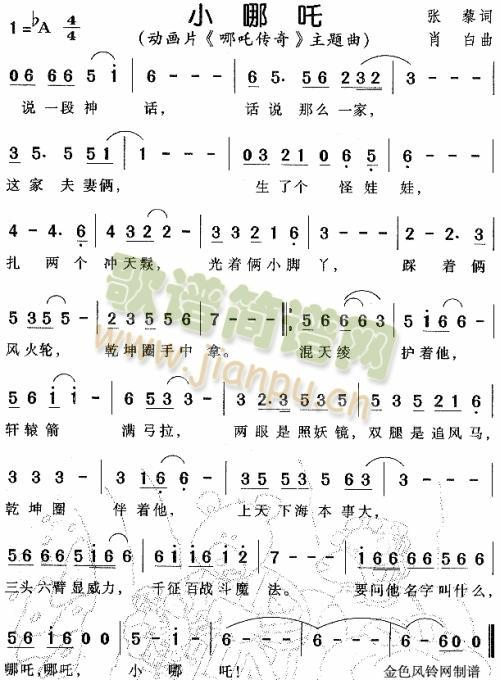 小哪吒
1=♭A 4/4
(动画片《哪吒传奇》主题曲)
张藜词
肖白曲
06 66 5 i 6 - - - 6 5. 56 232 3 - - -
说一段神话, 话说那么一家,
3 5. 5 51 1 - - - 03 21 06 5. 6 - - -
这家夫妻俩, 生了个怪娃娃,
4 - 4. 6 4 3 2 2 - 3 3 2 1 6 3 - - - 2 - 2. 3
扎两个冲天鬏, 光着俩小脚丫, 踩着俩
5 35 5 - 23 55 6 7 - - - 56 66 3 5 i6 6 -
风火轮, 乾坤圈手中拿。 混天绫护着他,
5 6 i i - 6 53 3 - 3 2.3 53 5 5 35 21 6
轩辕箭满弓拉, 两眼是照妖镜,双腿是追风马,
3 3 3 - 1 26 6 - 3 5 53 5 6 3 - - -
乾坤圈伴着他, 上天下海本事大,
56 66 5i 66 6i i6 i2 5 7 - - - i6 66 56 6
三头六臂显威力,千征百战斗魔法。 要问他名字叫什么,
56 i 02 02 5 - i - 6 - - - 6 - 60 0
哪吒,哪吒,小哪吒!
歌谱简谱网
www.jianpu.cn
金色风铃网制谱